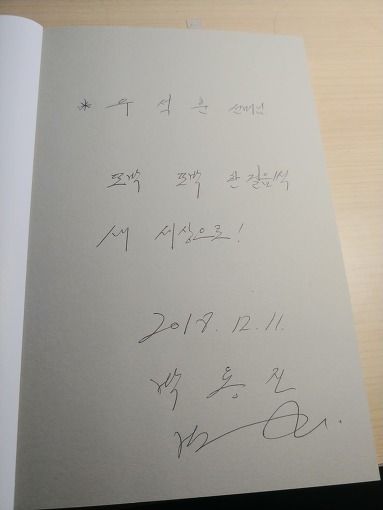 * 우 석 훈 선배님
또박 또박 한 걸음씩
새 세상으로!
2018. 12. 11.
박 용 진